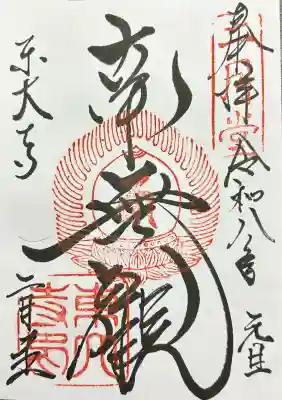 奉拝 令和八年 元旦
無観
東大寺
二月堂